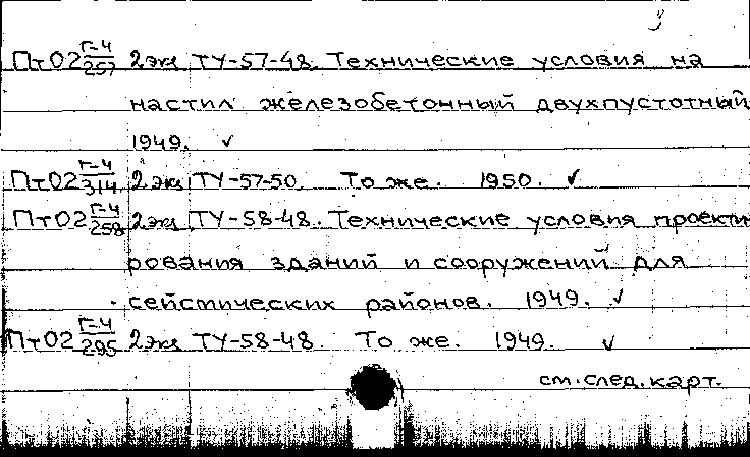 Пт02 Г-4/257 2 экз ТУ-57-48. Технические условия на
настил железобетонный двухпустотный
1949. ✓
Пт02 Г-4/314 2 экз ТУ-57-50. То же. 1950. ✓
Пт02 Г-4/258 2 экз ТУ-58-48. Технические условия проекти
рования зданий и сооружений для
сейстических районов. 1949. ✓
Пт02 Г-4/295 2 экз ТУ-58-48. То же. 1949. ✓
см. след. карт.